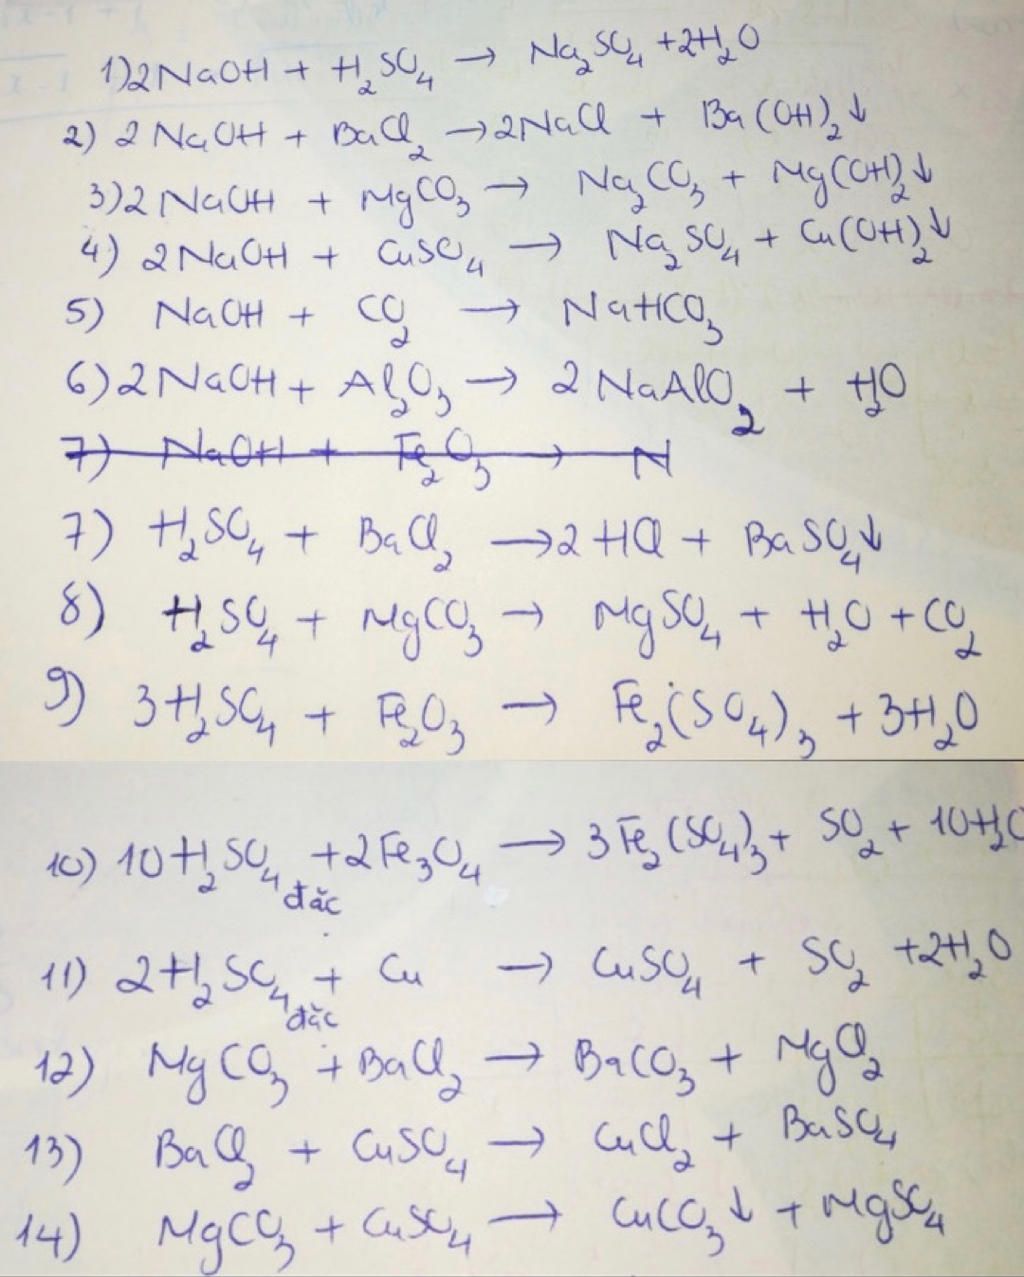 1) 2NaOH + H₂SO₄ → Na₂SO₄ + 2H₂O
2) 2NaOH + BaCl₂ → 2NaCl + Ba(OH)₂↓
3) 2NaOH + MgCO₃ → Na₂CO₃ + Mg(OH)₂↓
4) 2NaOH + CuSO₄ → Na₂SO₄ + Cu(OH)₂↓
5) NaOH + CO₂ → NaHCO₃
6) 2NaOH + Al₂O₃ → 2NaAlO₂ + H₂O
7) NaOH + Fe₂O₃ → N
7) H₂SO₄ + BaCl₂ → 2HCl + BaSO₄↓
8) H₂SO₄ + MgCO₃ → MgSO₄ + H₂O + CO₂
9) 3H₂SO₄ + Fe₂O₃ → Fe₂(SO₄)₃ + 3H₂O
10) 10H₂SO₄ đặc + 2Fe₃O₄ → 3Fe₂(SO₄)₃ + SO₂ + 10H₂O
11) 2H₂SO₄ đặc + Cu → CuSO₄ + SO₂ + 2H₂O
12) MgCO₃ + BaCl₂ → BaCO₃ + MgCl₂
13) BaCl₂ + CuSO₄ → CuCl₂ + BaSO₄
14) MgCO₃ + CuSO₄ → CuCO₃↓ + MgSO₄